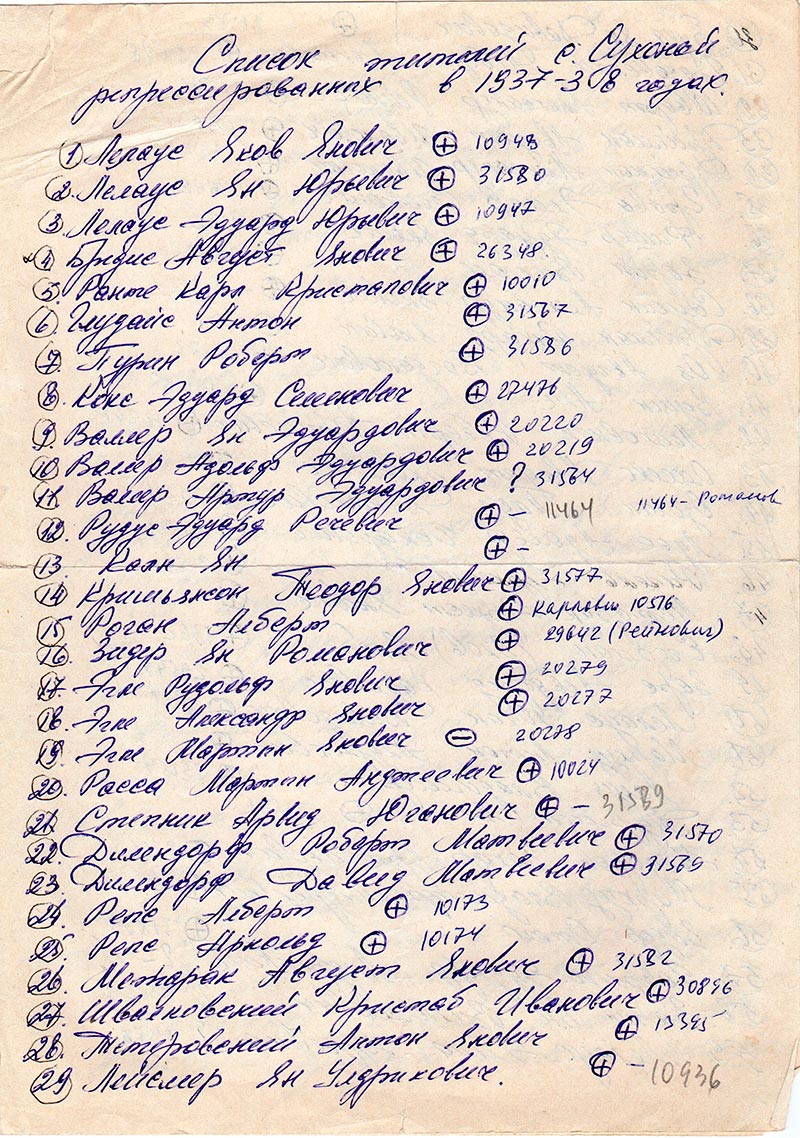 Список жителей с. Сухоной
репрессированных в 1937-38 годах.
1 Лелаус Яков Янович ⊕ 10948
2. Лелаус Ян Юрьевич ⊕ 31580
3. Лелаус Эдуард Юрьевич ⊕ 10947
4 Бридис Август Янович ⊕ 26348.
5. Ранте Карл Кристапович ⊕ 10010
6 Глудайс Антон ⊕ 31567
7. Пурин Роберт ⊕ 31586
8. Кокс Эдуард Семенович ⊕ 27476
9. Валлер Ян Эдуардович ⊕ 20220
10 Валлер Адольф Эдуардович ⊕ 20219
11. Валлер Артур Эдуардович ? 31564
12. Рудус Эдуард Речевич ⊕ – 11464 11464 – Романов
13 Калн Ян ⊕ –
14 Кришьянсон Теодор Янович ⊕ 31577
15 Роган Альберт ⊕ Карлович 10516
16. Зидер Ян Романович ⊕ 29642 (Рейнович)
17. Эгле Рудольф Янович ⊕ 20279
18. Эгле Александр Янович ⊕ 20277
19 Эгле Мартин Янович ⊖ 20278
20. Расса Мартин Анджеевич ⊕ 10024
21. Степник Арвид Юганович ⊕ – 31589
22. Дилендорф Роберт Матвеевич ⊕ 31570
23. Дилендорф Давид Матвеевич ⊕ 31569
24. Репс Альберт ⊕ 10173
25. Репс Арнольд ⊕ 10174
26. Межарак Август Янович ⊕ 31582
27. Швалковский Кристаб Иванович ⊕ 30896
28. Тетеровский Антон Янович ⊕ 13395
29 Лейсмер Ян Улдрикович. ⊕ – 10936